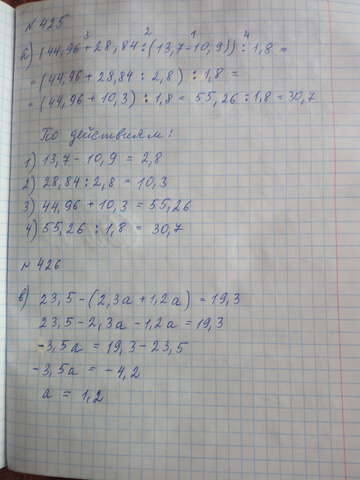 № 425
3 2 1 4
а) (44,96+28,84:(13,7-10,9)):1,8=
=(44,96+28,84:2,8):1,8=
=(44,96+10,3):1,8= 55,26:1,8=30,7
По действиям:
1) 13,7-10,9=2,8
2) 28,84:2,8=10,3
3) 44,96+10,3=55,26
4) 55,26:1,8=30,7
№ 426
в) 23,5-(2,3а+1,2а)=19,3
23,5-2,3а-1,2а=19,3
-3,5а=19,3-23,5
-3,5а=-4,2
а=1,2